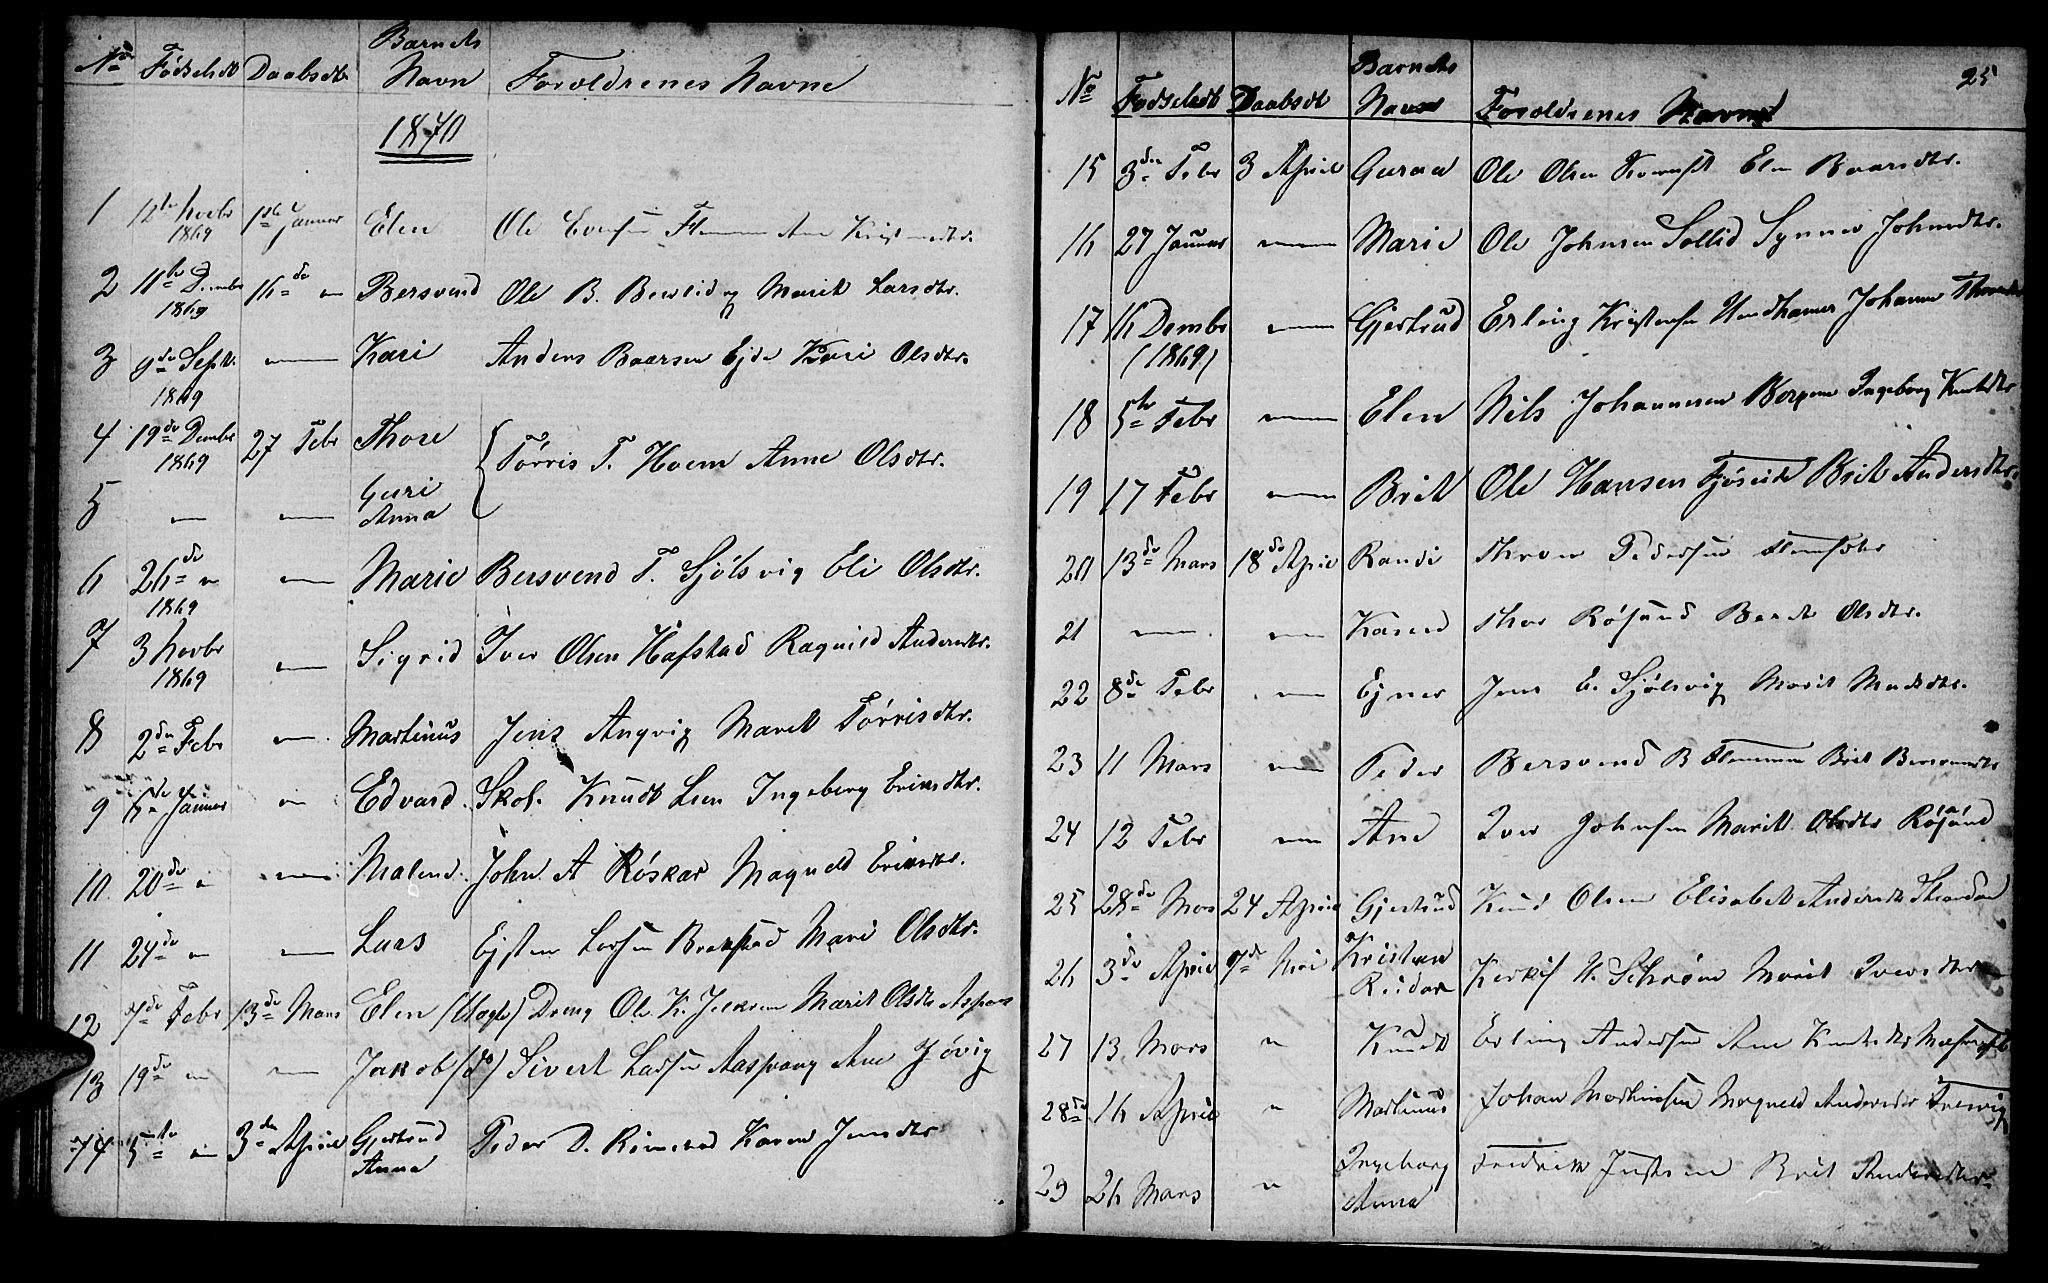 No Fødselsdt Daabsdt Barnets Navn Foroldrenes Navne
1870
1 12te Novbr 1869 1ste Januar Elen Ole
2 11te Dcmbr 1869 16de " Bersvend Ole B. Marit Larsdtr.
3 9de Septr. 1869 — Kari Anders Baarsen Ejde Kari Olsdtr.
4 19de Decmbr 1869 27 Febr Thore Tørris T. Hoem Anne Olsdtr.
5 — — Guri Anna
6 26de " 1869 — Marie Bersvend T. Sjølsvig Eli Olsdtr.
7 3 Novbr 1869 — Sigrid Iver Olsen Hafstad Ragnild Andersdtr.
8 2den Febr — Martinus Jens Angvig Marit Tørrisdtr.
9 6de Januar " Edvard Skol. Knudt Lien Ingeborg Eriksdtr.
10 20de " — Malene John A Røskar Magnild Eriksdtr.
11 24de " — Lars Ejsten Larsen Brekstad Mari Olsdtr.
12 7de Febr 13de Mars Elen (Uægte) Dreng Ole K. Marit Olsdtr
13 19de " — Jakob (do) Sivert Larsen Aaspang Ane Jøvig
14 5te " 3die April Gjertrud Anna Peder D. Rimstad Karen Jensdtr
25
No Fødseldt Daabsdt Barnets Navn Foroldrenes Navne
15 3die Febr 3 April Guraa Ole Olsen Elen Baarsdtr.
16 27 Januar — Marie Ole Johnsen Sollid Synnev Johnsdtr.
17 16 Dcmbr (1869) — Gjertrud Erling Kristensen Johanne
18 5te Febr — Elen Nils Johannesen Ingeborg Knutsdtr
19 17 Febr — Brit Ole Hansen Fjøseide Brit Andersdtr.
20 13de Mars 18de April Randi Thron Pedersen
21 — — Karen Thor Røsand Beret Olsdtr.
22 8de Febr — Ejner Jens E. Sjølsvig Marit Madsdtr.
23 11 Mars — Peder Bersvend B Brit Bersvendsdtr
24 12 Febr — Ane Iver Johnsen Marit Olsdtr Røsand
25 28de Mars 24 April Gjertrud Knud Olsen Elisabet Andersdtr
26 3die April 7de Mai Kristian Reidar Kirks. N. Schrøen Marit Iversdtr
27 13 Mars " Knudt Erling Andersen Ane Knutsdtr
28de 16 April " Martinus Johan Martinsen Magnild Andersdtr
29 26 Mars " Ingeborg Anna Fredrik Brit Andersdtr.